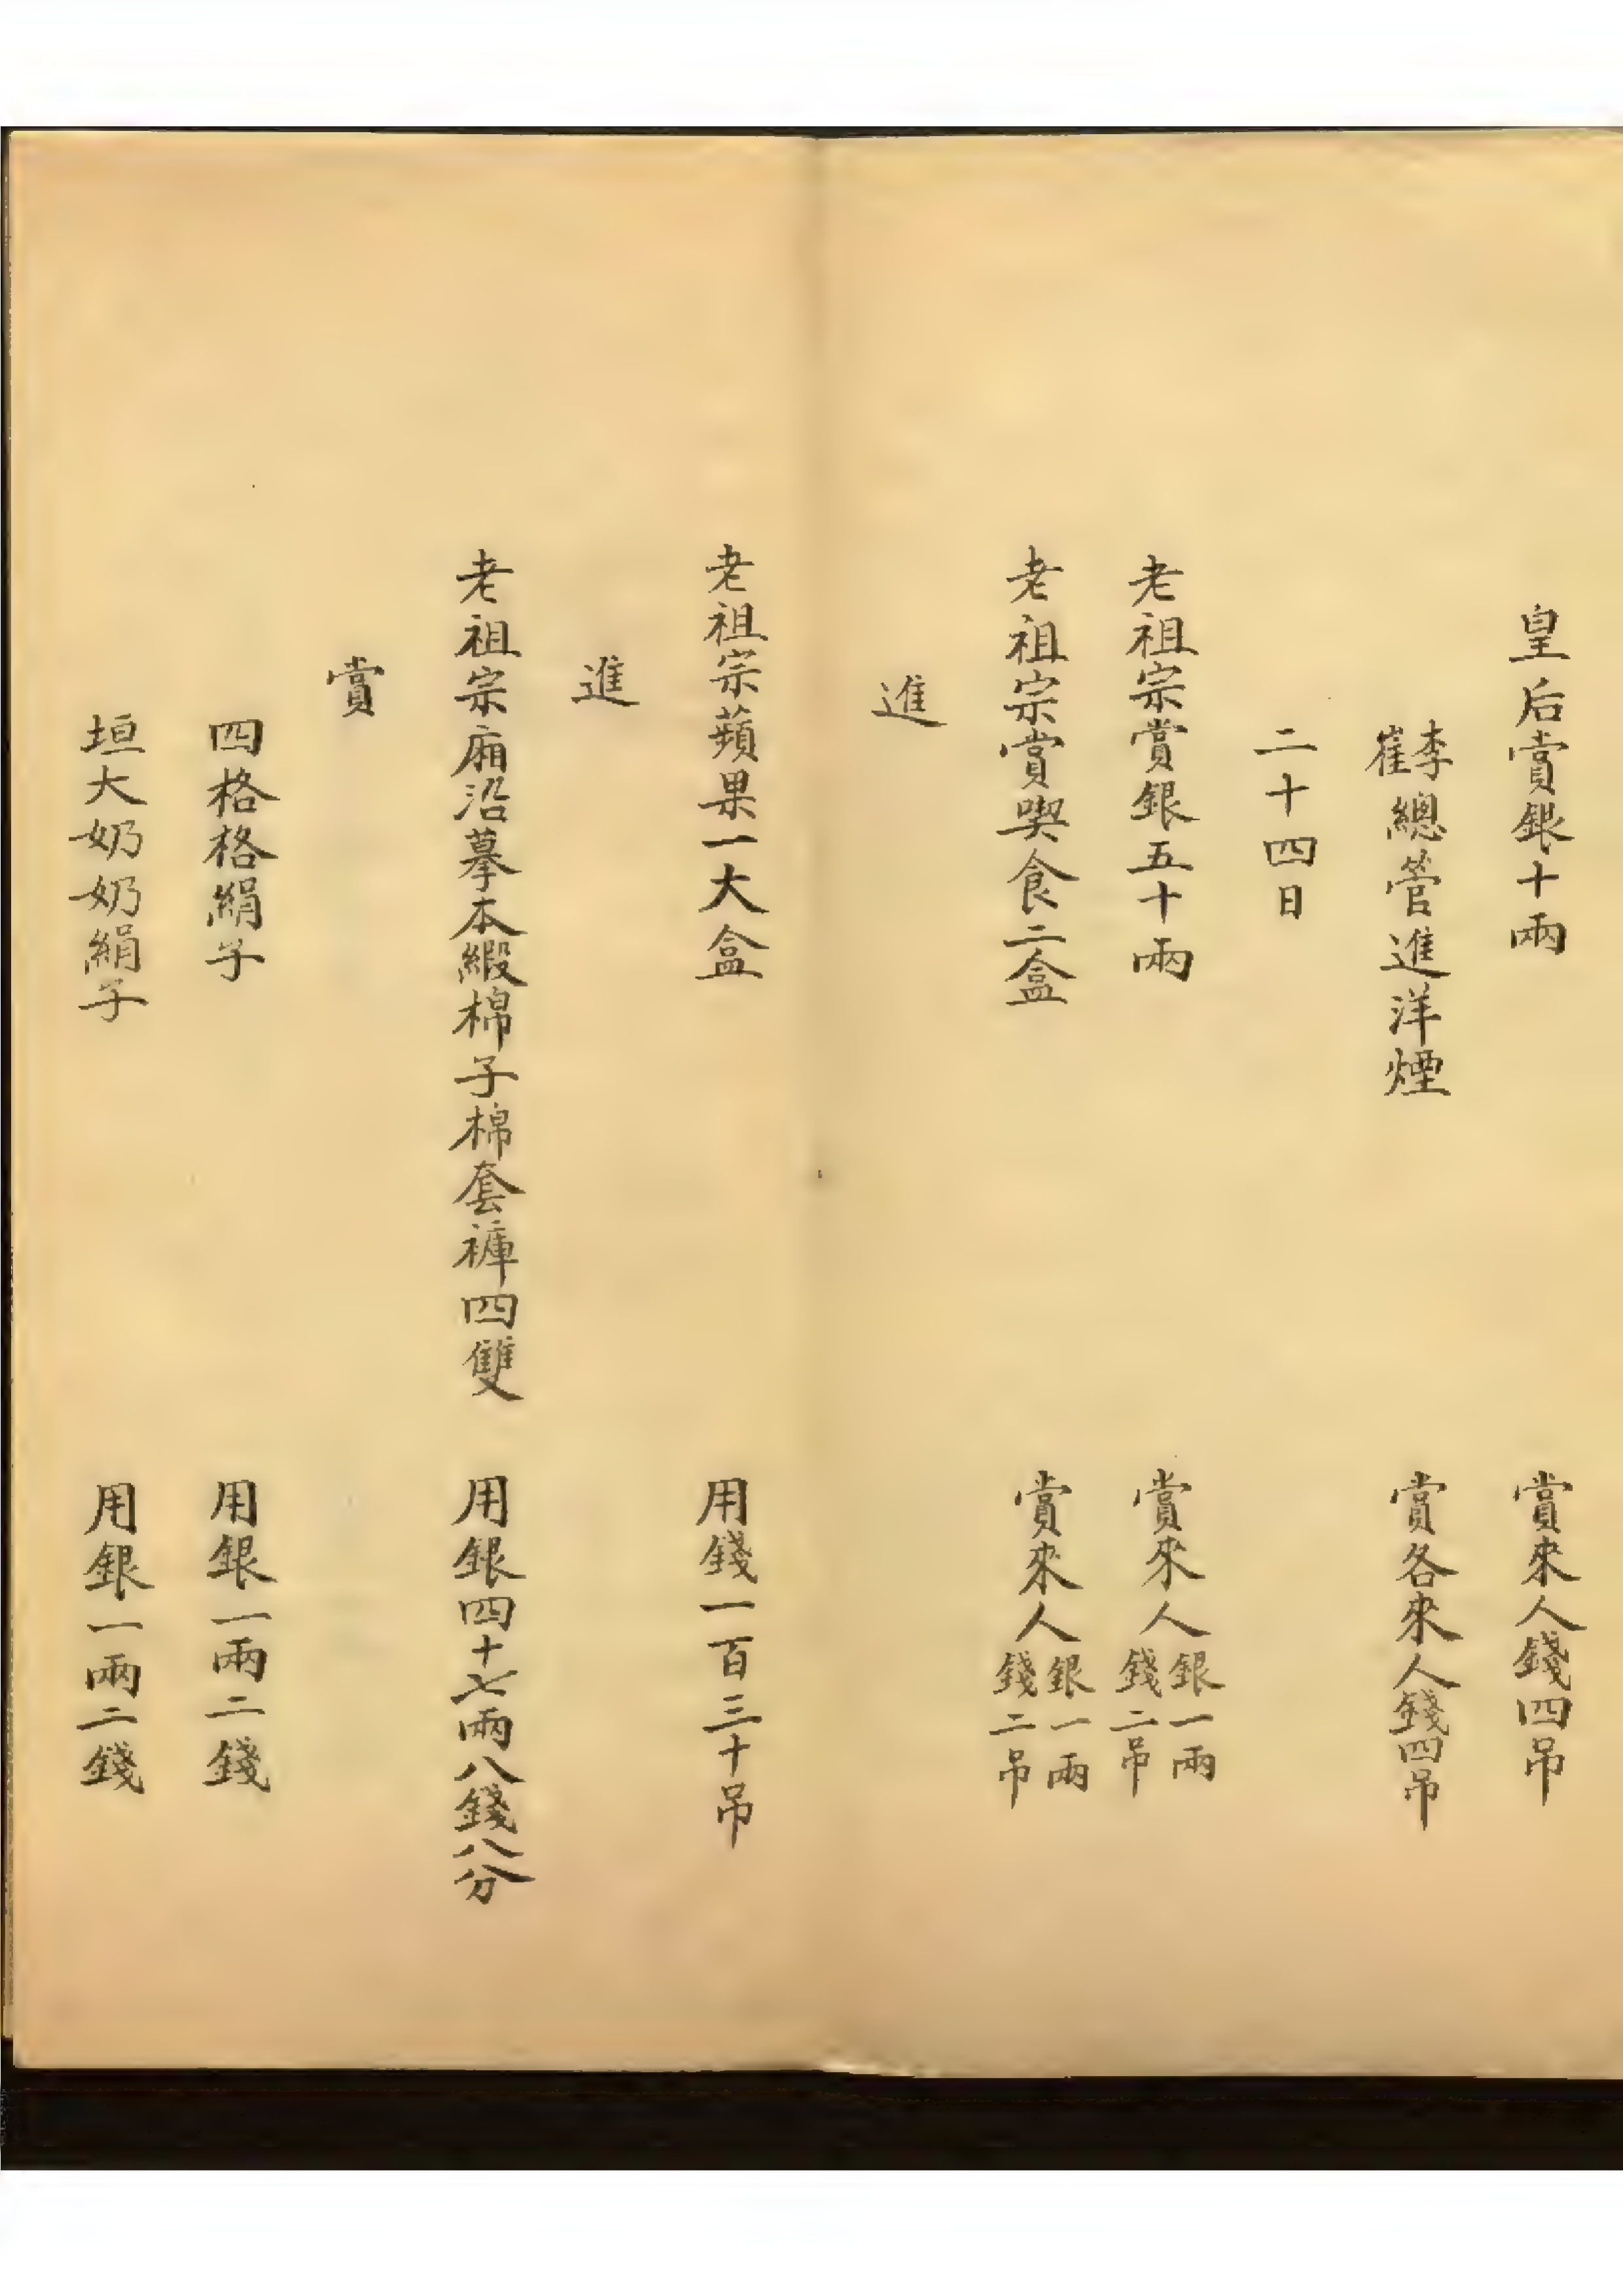 皇后賞銀十兩　賞來人錢四吊
李崔總管進洋煙　賞各來人錢四吊
二十四日
老祖宗賞銀五十兩　賞來人銀一兩錢二吊
老祖宗賞喫食二盒　賞來人銀一兩錢二吊
進
老祖宗蘋果一大盒　用錢一百三十吊
進
老祖宗廂沿摹本緞棉子棉套褲四雙　用銀四十七兩八錢八分
賞
四格格絹子　用銀一兩二錢
垣大奶奶絹子　用銀一兩二錢